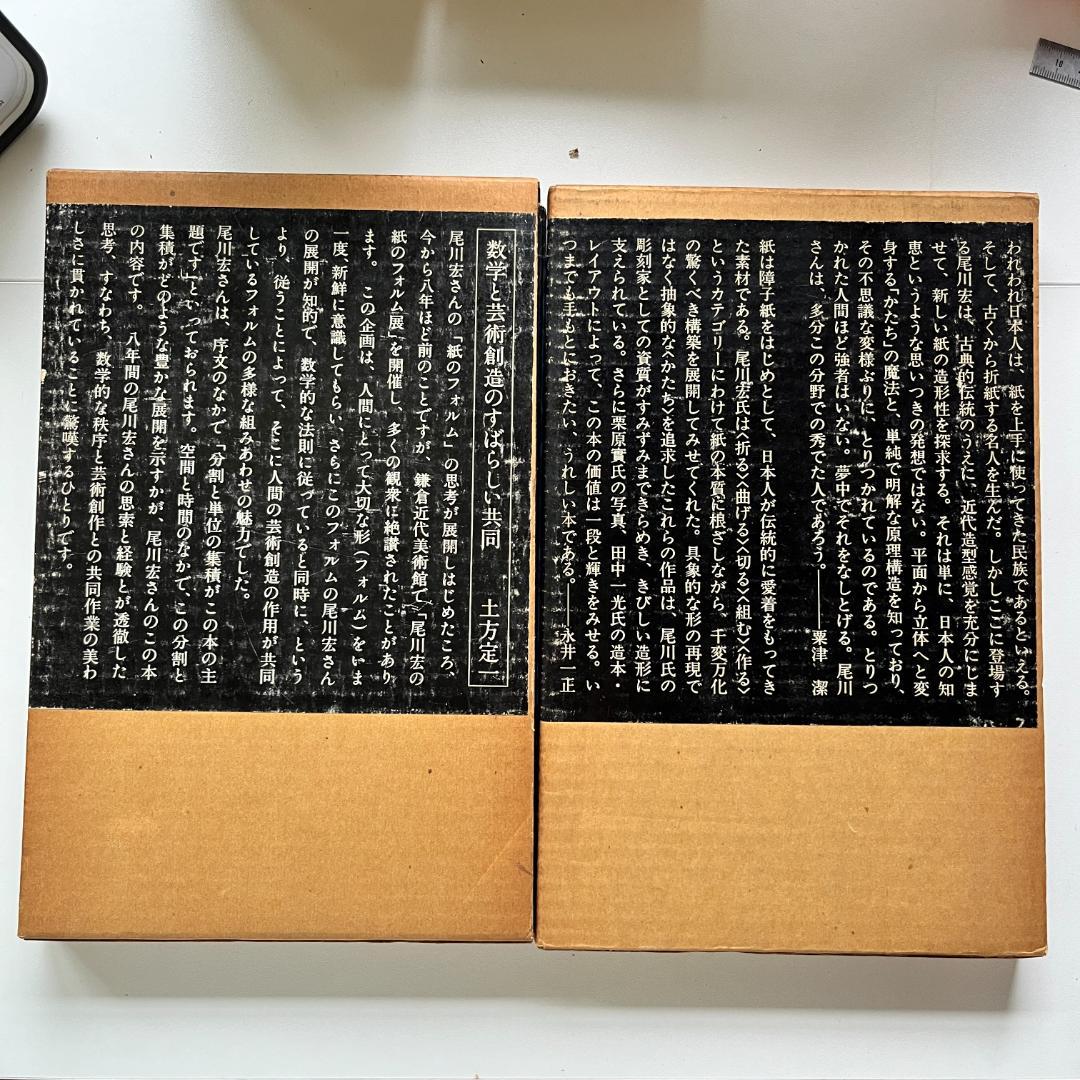 われわれ日本人は、紙を上手に使ってきた民族であるといえる。
そして、古くから折紙する名人を生んだ。しかしここに登場す
る尾川宏は、古典的伝統のうえに、近代造型感覚を充分にしま
せて、新しい紙の造形性を探求する。それは単に、日本人の知
恵というような思いつきの発想ではない。平面から立体へと変
身する「かたち」の魔法と、単純で明解な原理構造を知っており、
その不思議な変様ぶりに、とりつかれているのである。とりつ
かれた人間ほど強者はいない。夢中でそれをなしとげる。尾川
さんは、多分この分野での秀でた人であろう。——粟津 潔
紙は障子紙をはじめとして、日本人が伝統的に愛着をもってき
た素材である。尾川宏氏は〈折る〉〈曲げる〉〈切る〉〈組む〉〈作る〉
というカテゴリーにわけて紙の本質に根ざしながら、千変万化
の驚くべき構築を展開してみせてくれた。具象的な形の再現で
はなく抽象的な〈かたち〉を追求したこれらの作品は、尾川氏の
彫刻家としての資質がすみずみまできらめき、きびしい造形に
支えられている。さらに栗原實氏の写真、田中一光氏の造本・
レイアウトによって、この本の価値は一段と輝きをみせる。い
つまでも手もとにおきたい、うれしい本である。——永井一正
数学と芸術創造のすばらしい共同 土方定一
尾川宏さんの「紙のフォルム」の思考が展開しはじめたころ、
今から八年ほど前のことですが、鎌倉近代美術館で「尾川宏の
紙のフォルム展」を開催し、多くの観衆に絶讃されたことがあり
ます。 この企画は、人間にとって大切な形(フォルム)をいま
一度、新鮮に意識してもらい、さらにこのフォルムの尾川宏さん
の展開が知的で、数学的な法則に従っていると同時に、という
より、従うことによって、そこに人間の芸術創造の作用が共同
しているフォルムの多様な組みあわせの魅力でした。
尾川宏さんは、序文のなかで「分割と単位の集積がこの本の主
題です」といっておられます。空間と時間のなかで、この分割と
集積がどのような豊かな展開を示すかが、尾川宏さんのこの本
の内容です。 八年間の尾川宏さんの思索と経験とが透徹した
思考、すなわち、数学的な秩序と芸術創作との共同作業の美わ
しさに貫かれていることに驚嘆するひとりです。
10